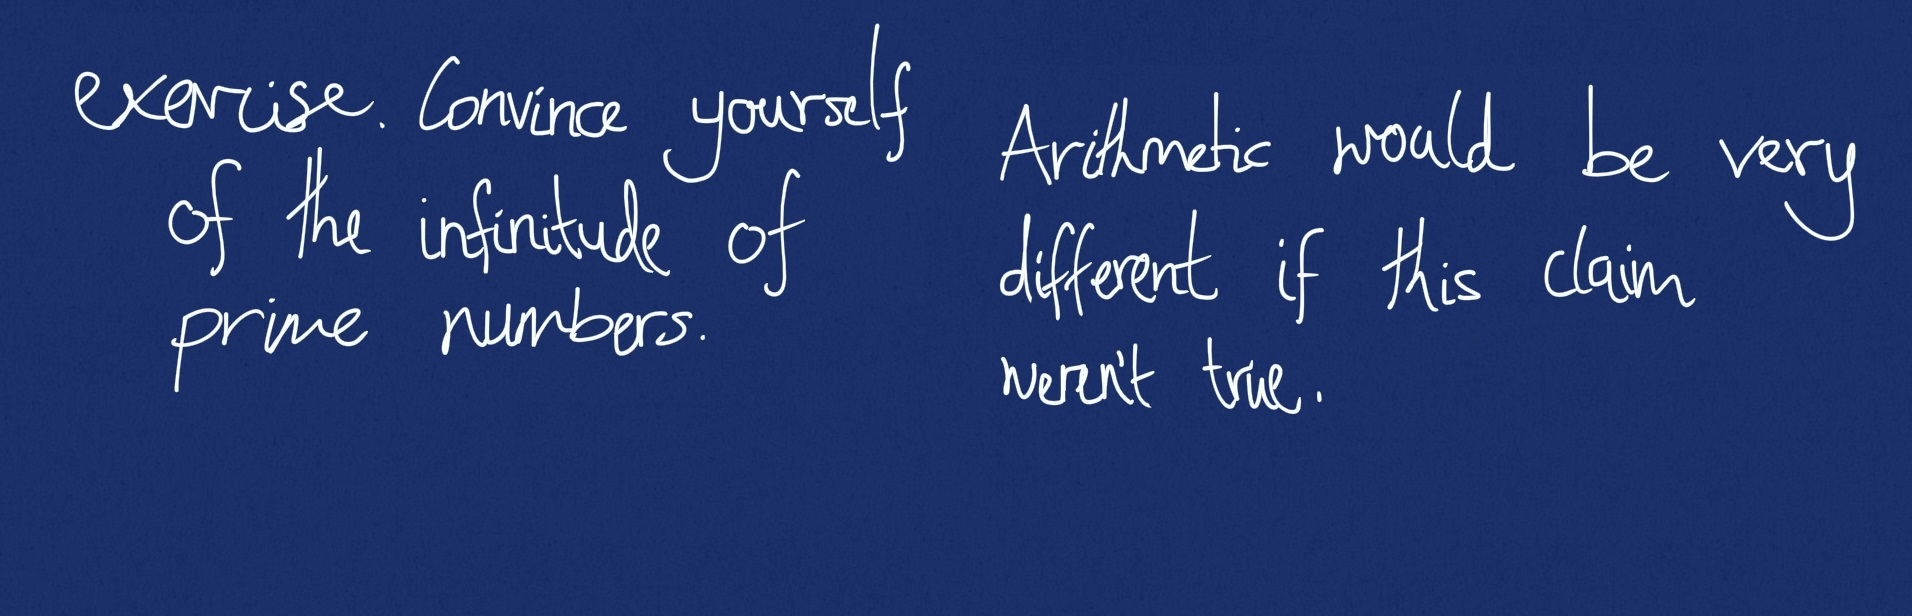 exercise. Convince yourself
of the infinitude of
prime numbers.
Arithmetic would be very
different if this claim
weren't true.